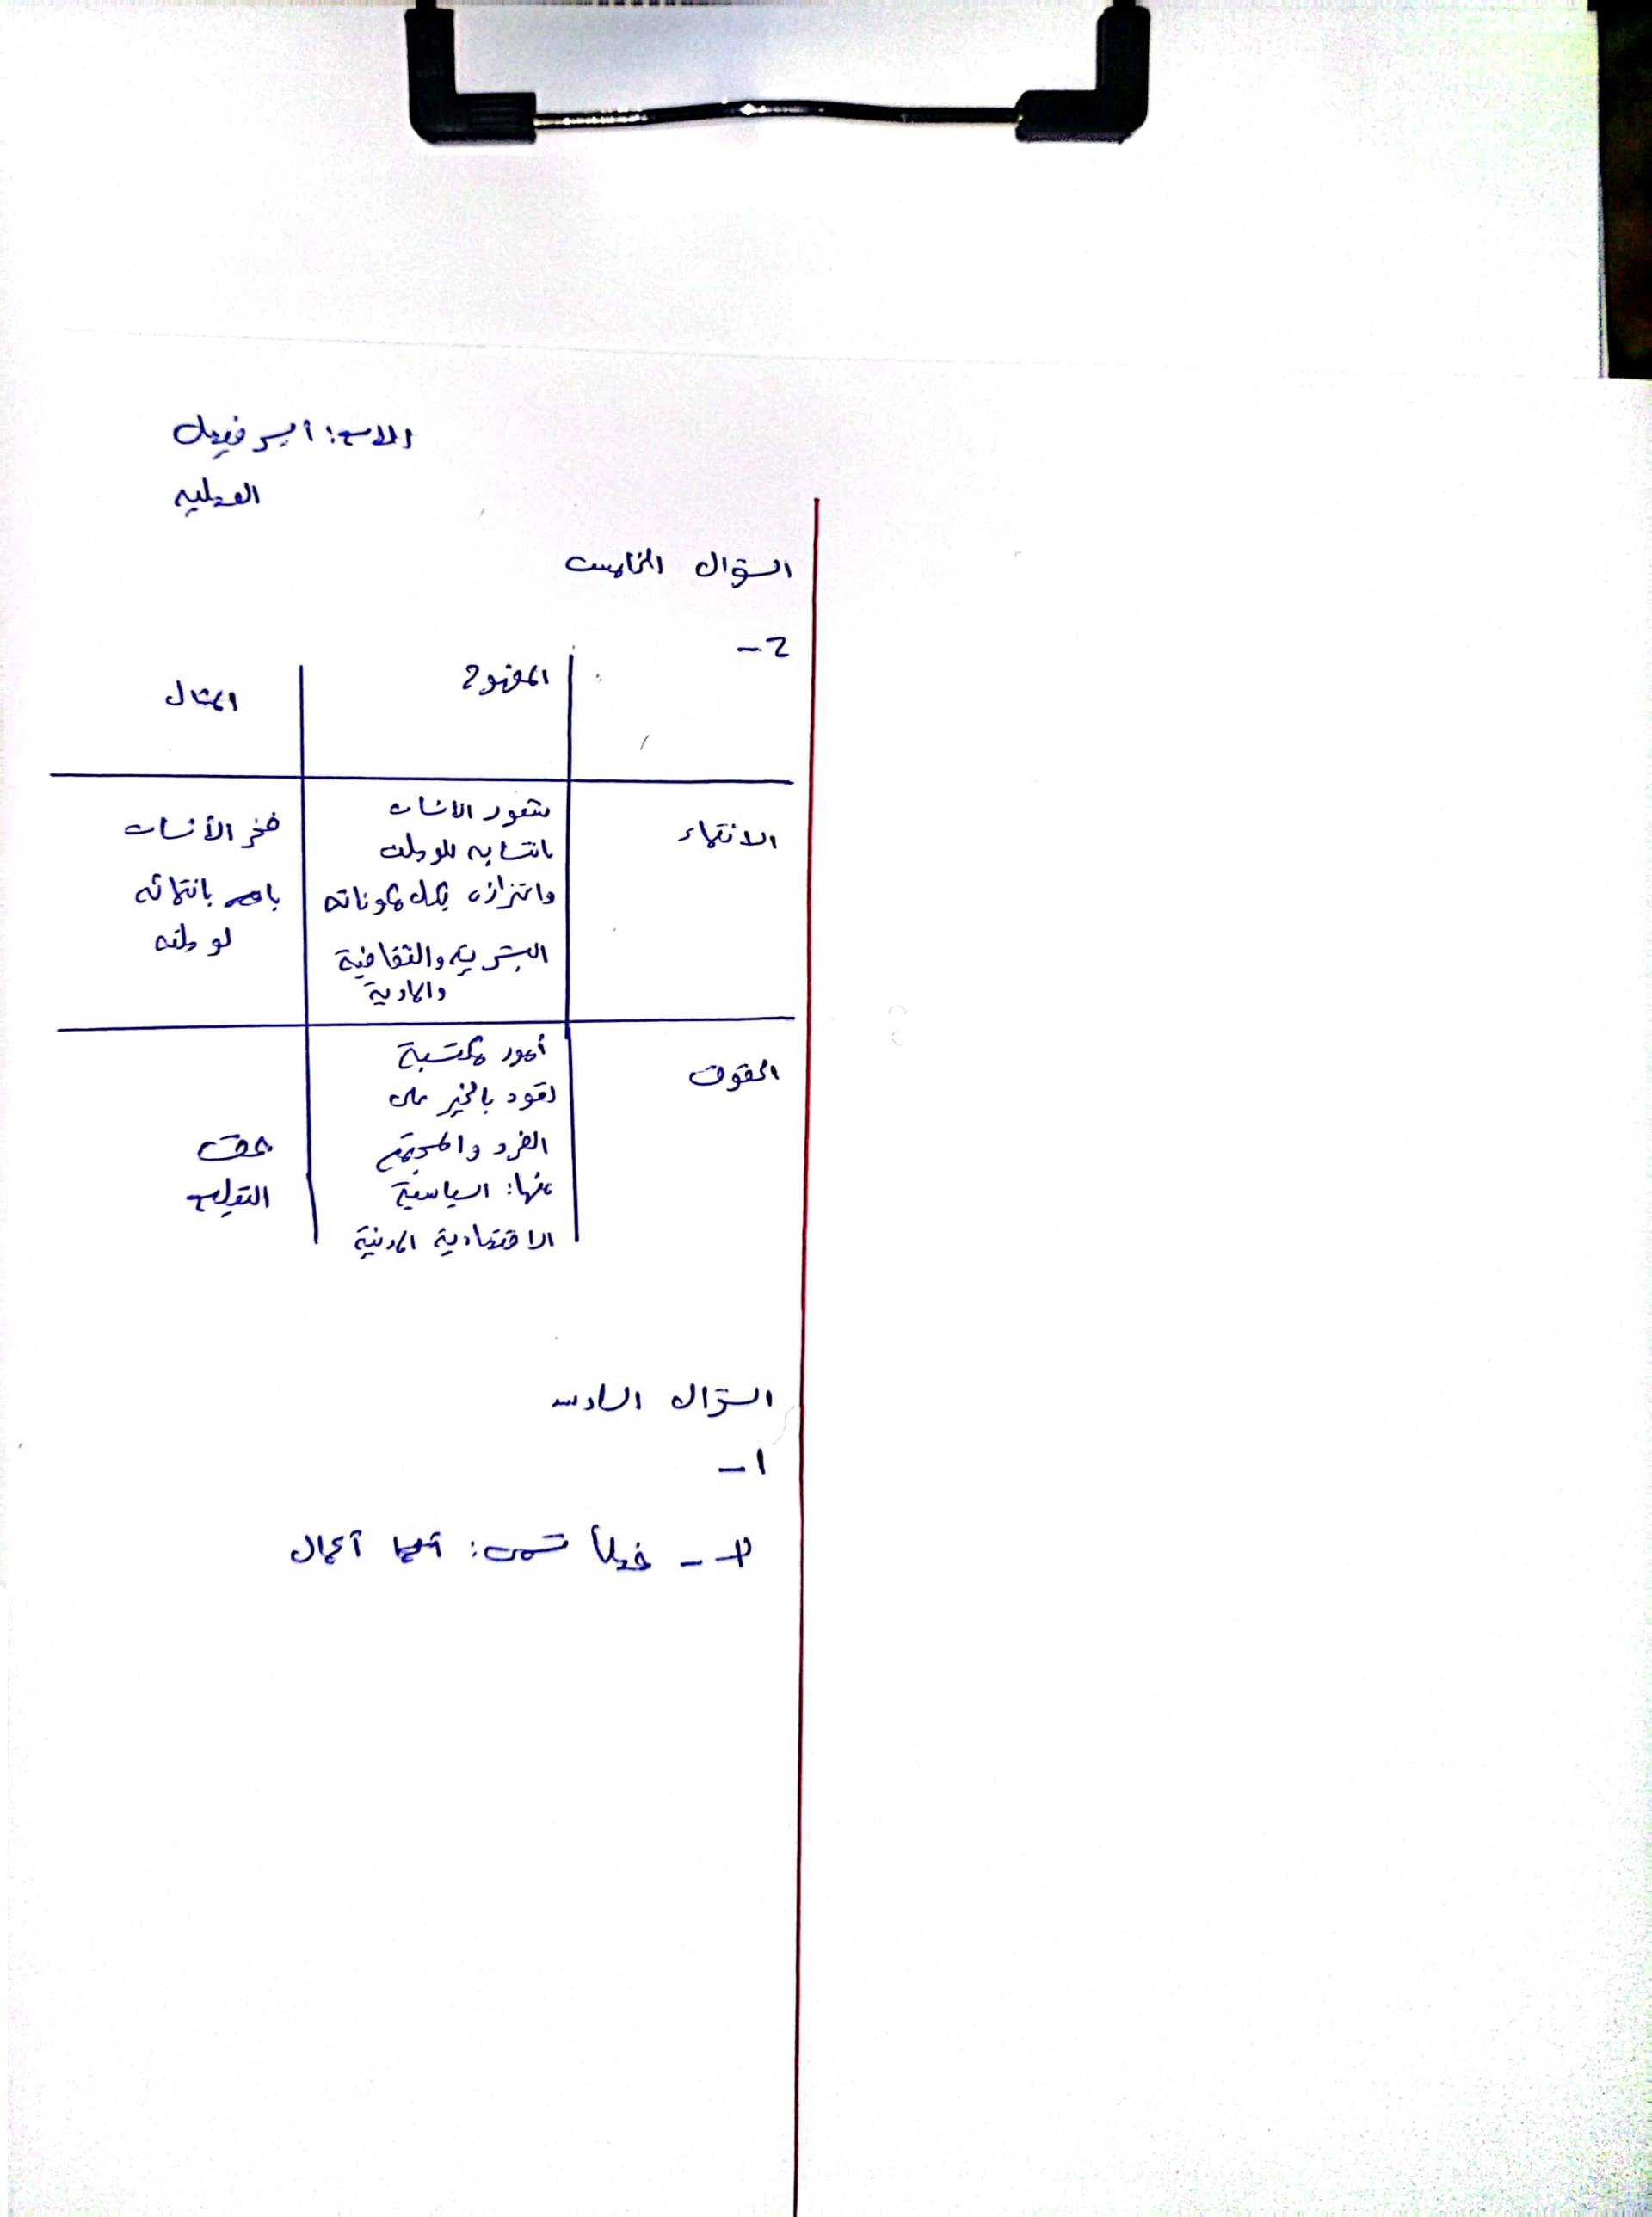 الاسم:
السؤال الخامس
2-
المفهوم
المثال
الانتماء
شعور الانسان
بانتسابه للوطن
واعتزازه بكل مكوناته
البشرية والثقافية
والمادية
فخر الأنسان
بانتمائه
لوطنه
الحقوق
أمور مكتسبة
تعود بالخير على
الفرد والمجتمع
منها: السياسية
الاقتصادية المدنية
حق
التعليم
السؤال السادس
1-
خطأ